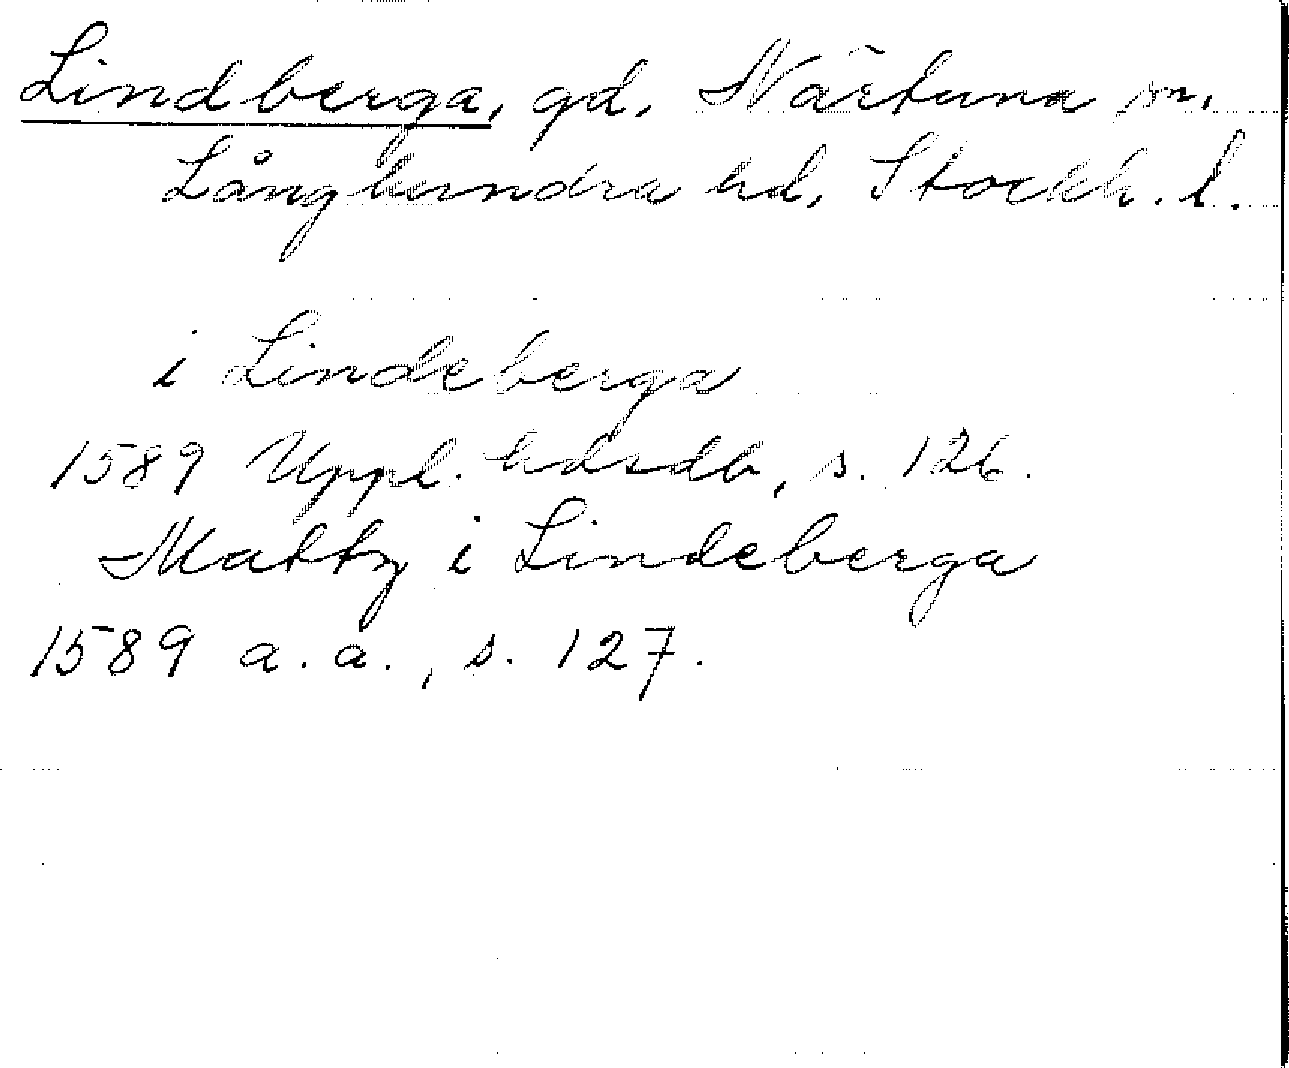 Lindberga, gd, Närtuna sn,
Långhundra hd, Stockh. l.
i Lindeberga
1589 Uppl. hdrdb, s. 126.
Mattz i Lindeberga
1589 a. a., s. 127.